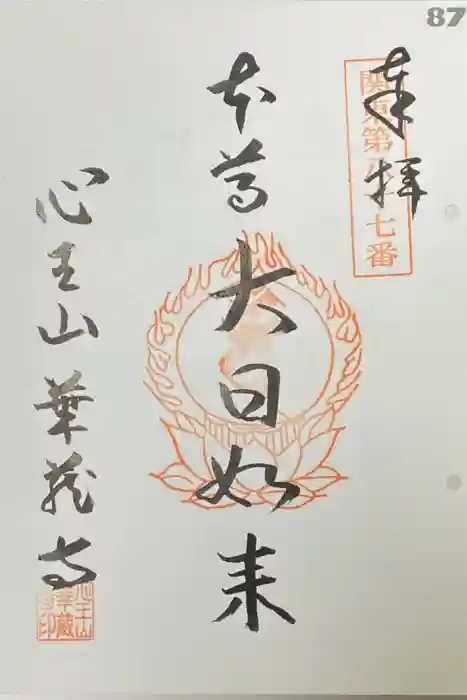 87
奉拝
関東第八十七番
本尊
大日如来
心王山華蔵寺
心王山
華蔵
寺印